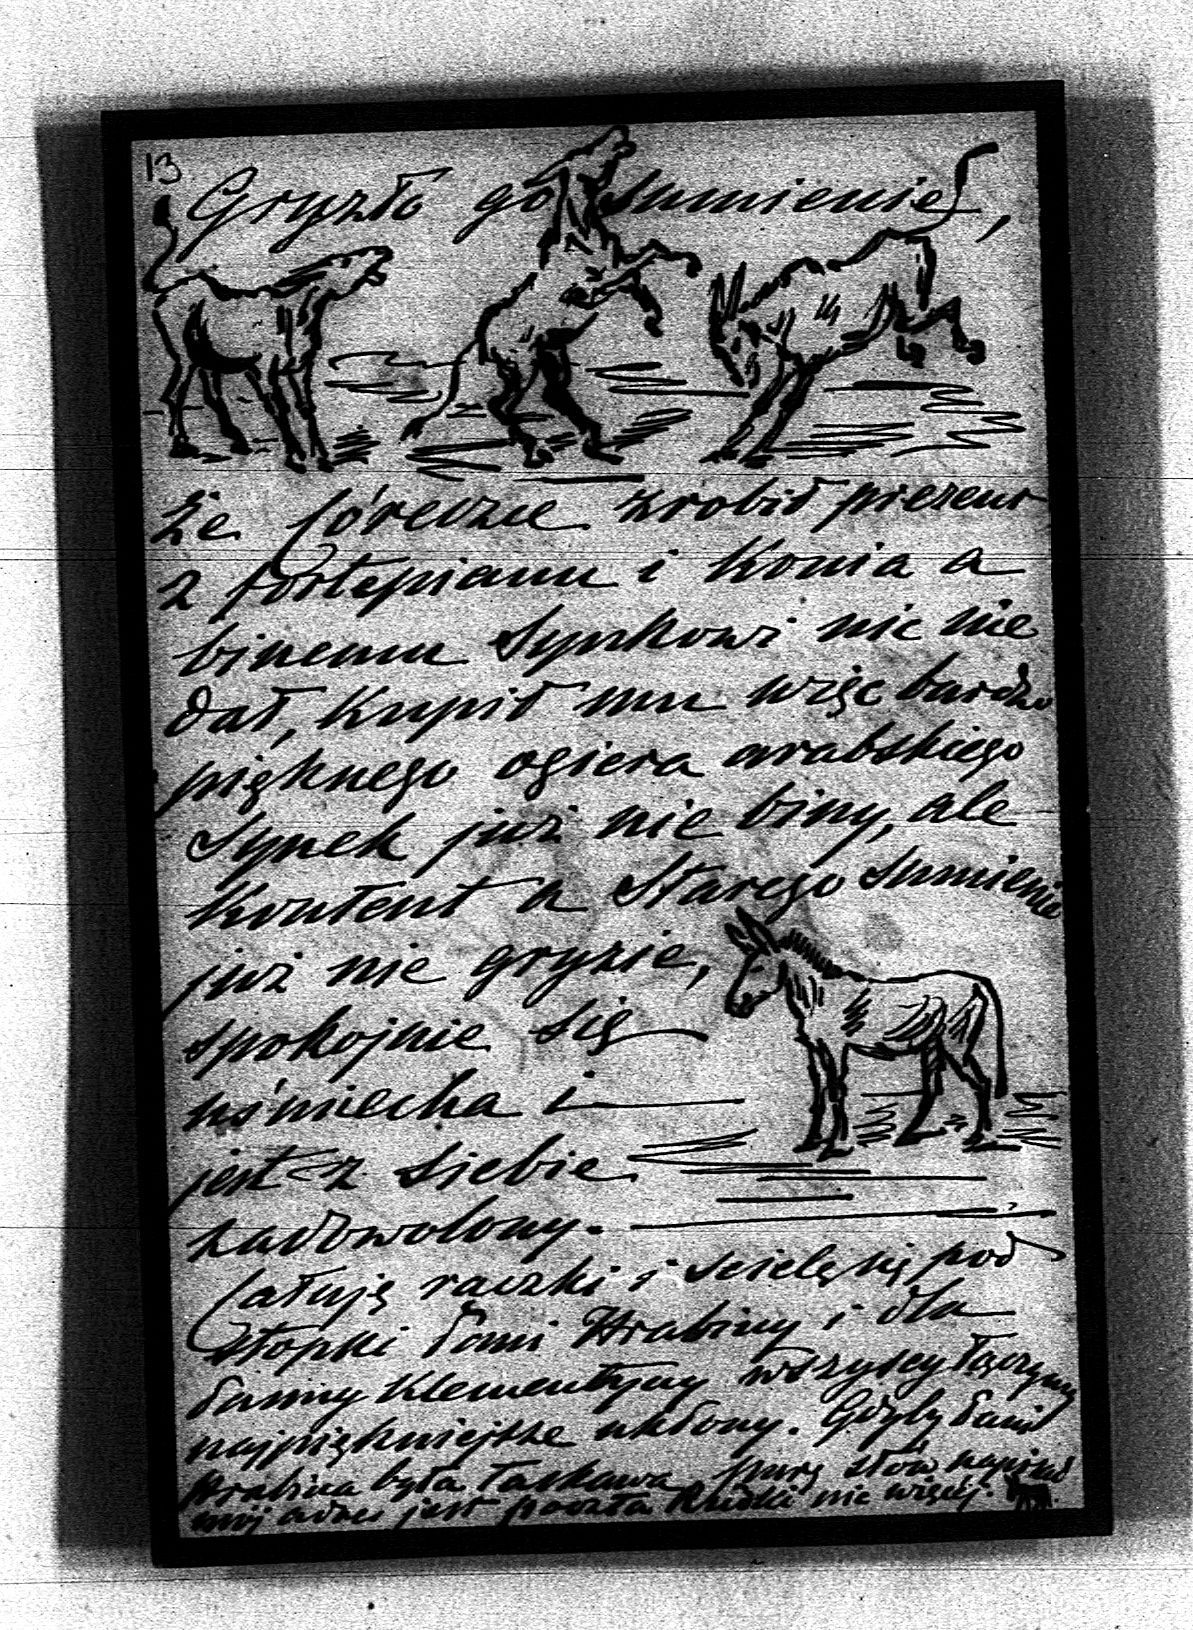 13
Gryzło go sumienie,
że córeczce zrobił prezent
z fortepianu i konia a
binemu Synkowi nic nie
dał, kupił mu więc bardzo
pięknego ogiera arabskiego
Synek już nie biny, ale
kontent a Starego sumienie
już nie gryzie,
spokojnie się
uśmiecha i
jest z siebie
zadowolony.
Całuję rączki i ścielę się pod
stopki Pani Hrabiny i dla
Panny Klementyny wszyscy łączymy
najpiękniejsze ukłony. Gdyby Pani
Hrabina była łaskawa parę słów napisać
mój adres jest poczta Rudki nic więcéj.